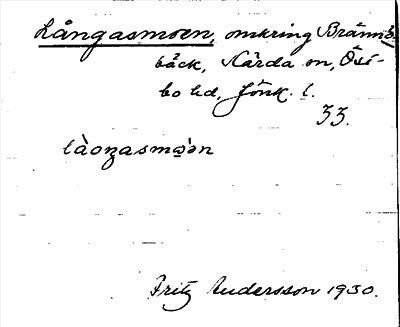 Långasmoen, omkring Bränne-
bäck, Kärda sn, Öst-
bo hd, Jönk. l.
33.
làoŋasmòən
Fritz Andersson 1930.